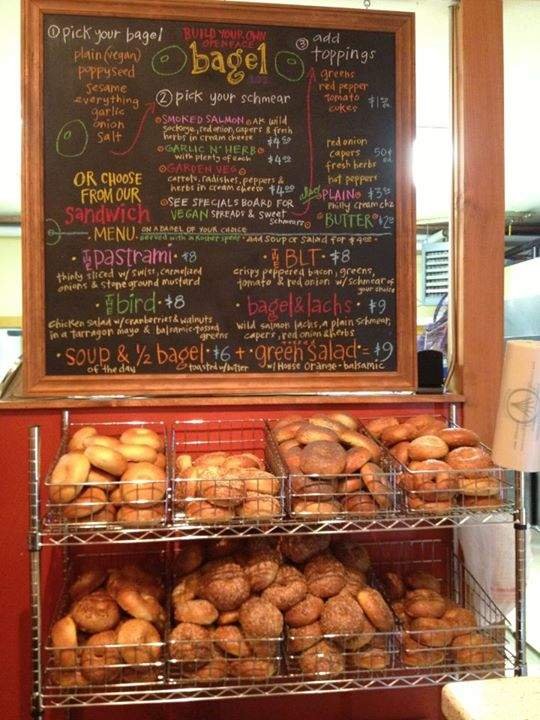 ① pick your bagel
plain (vegan)
poppyseed
sesame
everything
garlic
onion
salt
BUILD YOUR OWN
OPENFACE
bagel
② pick your schmear
SMOKED SALMON AK wild
sockeye, red onion, capers & fresh
herbs in cream cheese
GARLIC N' HERB
with plenty of each
GARDEN VEG
carrots, radishes, peppers &
herbs in cream cheese
SEE SPECIALS BOARD FOR
VEGAN SPREADS & SWEET
Schmears
③ add
toppings
greens
red pepper
tomato
cukes
red onion
capers 50¢
fresh herbs
hot peppers
also
PLAIN
philly cream chz
BUTTER
OR CHOOSE
FROM OUR
Sandwich
MENU
ON A BAGEL OF YOUR CHOICE
served with a kosher spear · add soup or salad for
· THE pastrami · $8
thinly sliced w/ swiss, carmelized
onions & stone ground mustard
THE bird · $8
chicken salad w/ cranberries & walnuts
in a tarragon mayo & balsamic-tossed
greens
· THE BLT · $8
crispy peppered bacon, greens,
tomato & red onion w/ schmear of
your choice
· bagel & lachs · $9
wild salmon lachs, a plain schmear,
capers, red onion & herbs
· SOUP & ½ bagel · $6 + · green salad - $9
of the day toasted w/ butter w/ House Orange - balsamic